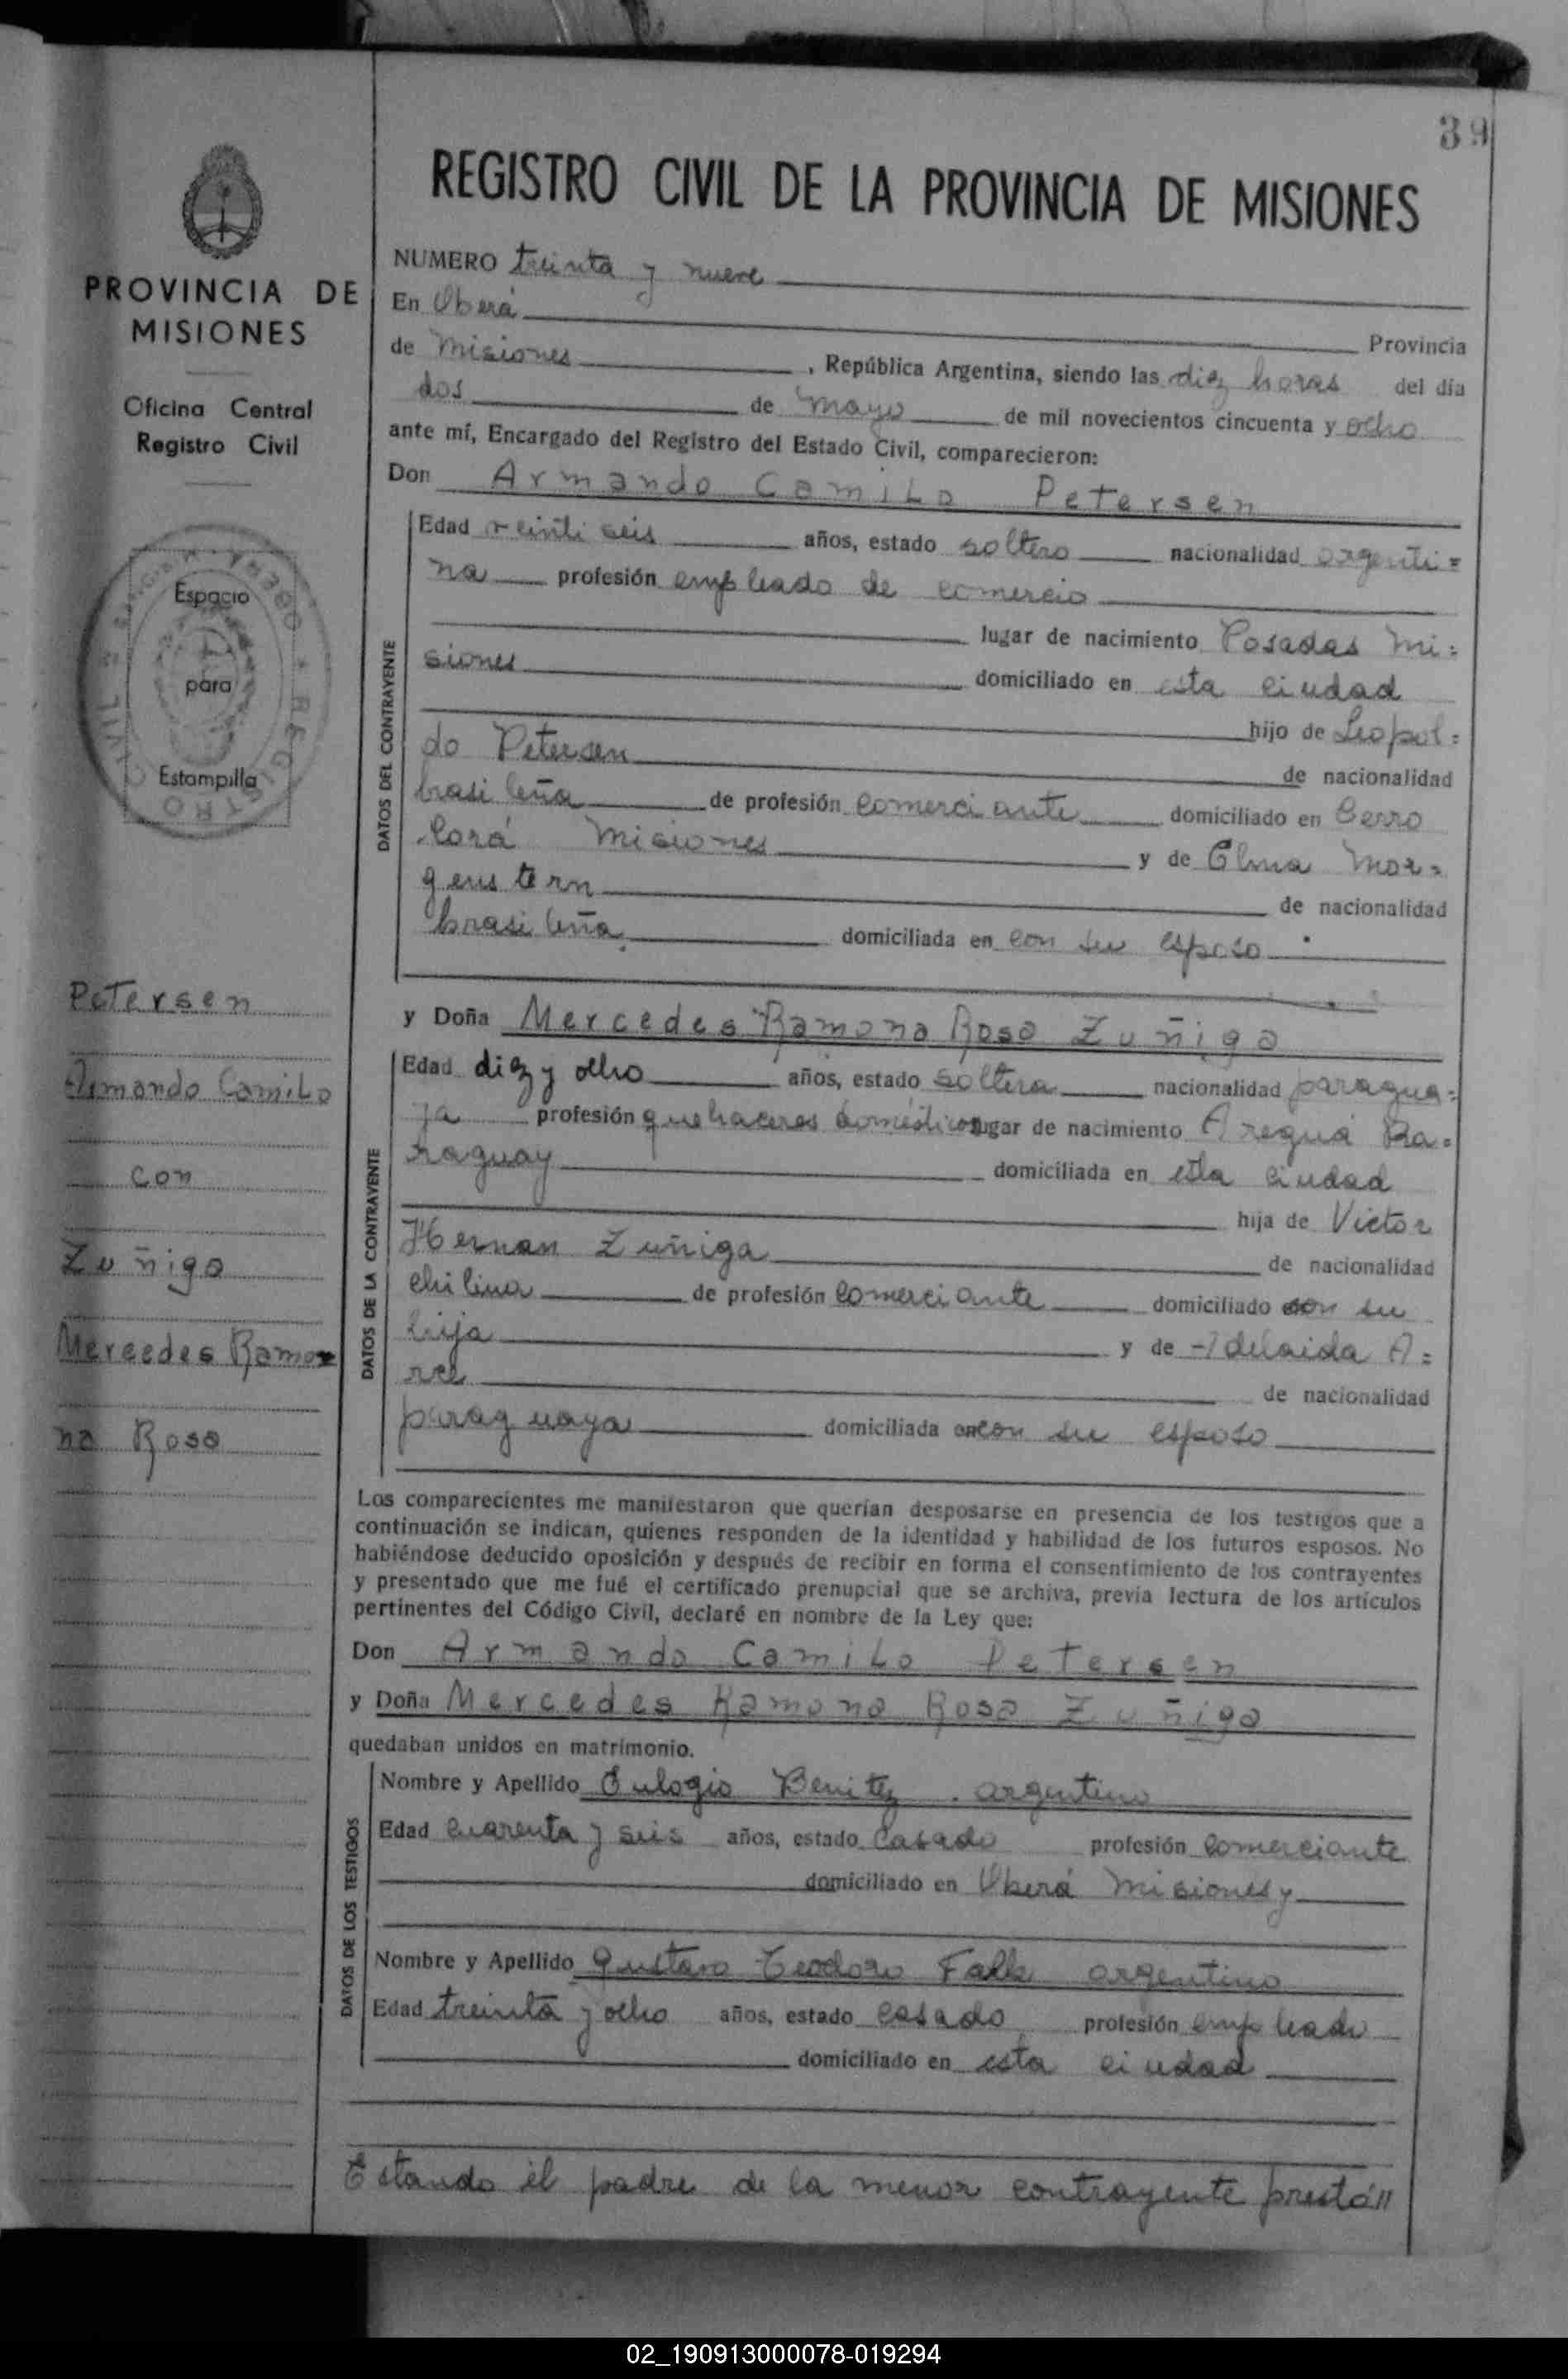 39
REGISTRO CIVIL DE LA PROVINCIA DE MISIONES
PROVINCIA DE
MISIONES
Oficina Central
Registro Civil
Espacio
para
Estampilla
Petersen
Armando Camilo
con
Zuñiga
Mercedes Ramo=
na Rosa
NUMERO treinta y nueve
En Oberá Provincia
de Misiones, República Argentina, siendo las diez horas del día
dos de mayo de mil novecientos cincuenta y ocho
ante mí, Encargado del Registro del Estado Civil, comparecieron:
Don Armando Camilo Petersen
DATOS DEL CONTRAYENTE
Edad veinti seis años, estado soltero nacionalidad argenti=
na profesión empleado de comercio
lugar de nacimiento Posadas Mi=
siones domiciliado en esta ciudad
hijo de Leopol=
do Petersen de nacionalidad
brasileña de profesión comerciante domiciliado en Cerro
Corá Misiones y de Elma Mor=
genstern de nacionalidad
brasileña domiciliada en con su esposo.
y Doña Mercedes Ramona Rosa Zuñiga
DATOS DE LA CONTRAYENTE
Edad diez y ocho años, estado soltera nacionalidad paragua=
ya profesión quehaceres domésticos lugar de nacimiento Areguá Pa=
raguay domiciliada en esta ciudad
hija de Victor
Hernan Zuñiga de nacionalidad
chilena de profesión comerciante domiciliado con su
hija y de Adelaida A=
rce de nacionalidad
paraguaya domiciliada en con su esposo
Los comparecientes me manifestaron que querían desposarse en presencia de los testigos que a
continuación se indican, quienes responden de la identidad y habilidad de los futuros esposos. No
habiéndose deducido oposición y después de recibir en forma el consentimiento de los contrayentes
y presentado que me fué el certificado prenupcial que se archiva, previa lectura de los artículos
pertinentes del Código Civil, declaré en nombre de la Ley que:
Don Armando Camilo Petersen
y Doña Mercedes Ramona Rosa Zuñiga
quedaban unidos en matrimonio.
DATOS DE LOS TESTIGOS
Nombre y Apellido Eulogio Benitez. argentino
Edad cuarenta y seis años, estado casado profesión comerciante
domiciliado en Oberá Misiones y
Nombre y Apellido Gustavo Teodoro Falk argentino
Edad treinta y ocho años, estado casado profesión empleado
domiciliado en esta ciudad
Estando el padre de la menor contrayente prestó//
02_190913000078-019294